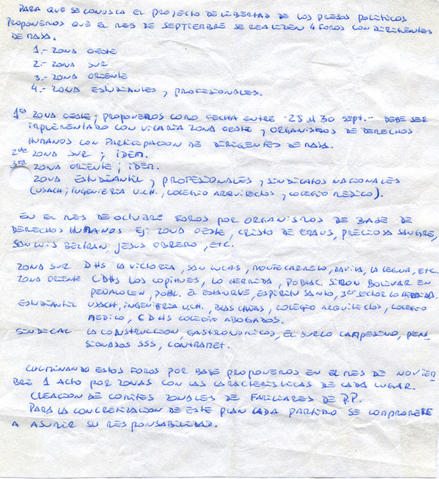 PARA QUE SE CONOSCA EL PROYECTO DE LIBERTAD DE LOS PRESOS POLITICOS
PROPONEMOS QUE EL MES DE SEPTIEMBRE SE REALIZEN 4 FOROS CON DIRIGENTES
DE MASA.
1.- ZONA OESTE
2.- ZONA SUR
3.- ZONA ORIENTE
4.- ZONA ESTUDIANTES, PROFESIONALES.
1ª ZONA OESTE; PROPONEMOS COMO FECHA ENTRE -25 Al 30 SEPT.- DEBE SER
IMPLEMENTADO CON VICARIA ZONA OESTE, Y ORGANISMOS DE DERECHOS
HUMANOS CON PARTICIPACION DE DIRIGENTES DE MASA.
ZONA SUR; IDEM.
ZONA ORIENTE; IDEM.
ZONA ESTUDIANTIL, PROFESIONALES, SINDICATOS NACIONALES
(USACH, INGENIERIA U.CH., COLEGIO ARQUITECTOS, COLEGIO MEDICO).
EN EL MES DE OCTUBRE FOROS POR ORGANISMOS DE BASE DE
DERECHOS HUMANOS EJ: ZONA OESTE, CRISTO DE EMAUS, PRECIOSA SANGRE,
SAN LUIS BELTRAN, JESUS OBRERO, ETC.
ZONA SUR DHS LA VICTORIA, SAN LUCAS, MONTE CARMELO, DAVILA, LA LEGUA, ETC.
ZONA ORIENTE CDHS LOS COPIHUES, LO HERMIDA, POBLAC. SIMON BOLIVAR EN
PEÑALOLEN, POBL. ESPIRITU SANTO, 3er SECTOR LO HERMIDA.
ESTUDIANTIL USACH, INGENIERIA UCH. COLEGIO ARQUITECTOS, COLEGIO
MEDICO, CDHS COLEGIO ABOGADOS.
SINDICAL LA CONSTRUCCION, GASTRONOMICOS, EL SURCO CAMPESINO, PEN-
SIONADOS SSS, CONTRAMET.
CULMINANDO ESTOS FOROS POR BASE PROPONEMOS EN EL MES DE NOVIEM
BRE 1 ACTO POR ZONAS CON LAS CARACTERISTICAS DE CADA LUGAR.
CREACION DE COMITES ZONALES DE FAMILIARES DE P.P.
PARA LA CONCRETIZACION DE ESTE PLAN CADA PARTIDO SE COMPROMETE
A ASUMIR SU RESPONSABILIDAD.